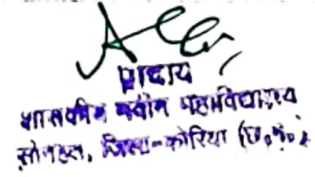 प्राचार्य
शासकीय नवीन महाविद्यालय
सोनहत, जिला-कोरिया (छ०ग०)